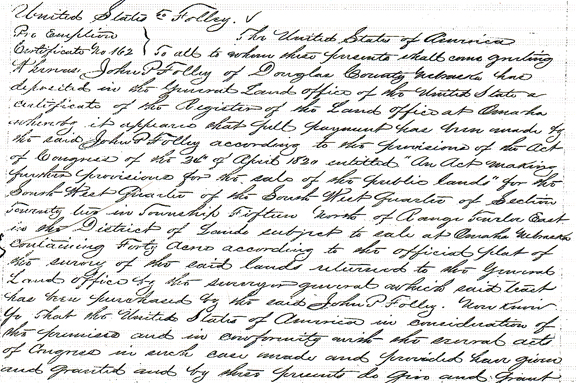 United States to Folley.
Pre Emption } The United States of America
Certificate No 162 } To all to whom these presents shall come greeting
Whereas John P Folley of Douglas County Nebraska has
deposited in the General Land office of the United States a
certificate of the Register of the Land office at Omaha
whereby it appears that full payment has been made by
the said John P Folley according to the provisions of the Act
of Congress of the 24th of April 1820 entitled "An Act making
further provisions for the sale of the public lands" for the
South West Quarter of the South West Quarter of Section
Twenty two in Township Fifteen North of Range Twelve East
in the District of Lands subject to sale at Omaha Nebraska
containing Forty Acres according to the official plat of
the survey of the said lands returned to the General
Land Office by the surveyor general which said tract
has been purchased by the said John P Folley. Now Know
Ye That the United States of America in consideration of
the premises and in conformity with the several acts
of Congress in such case made and provided have given
and granted and by these presents do give and Grant